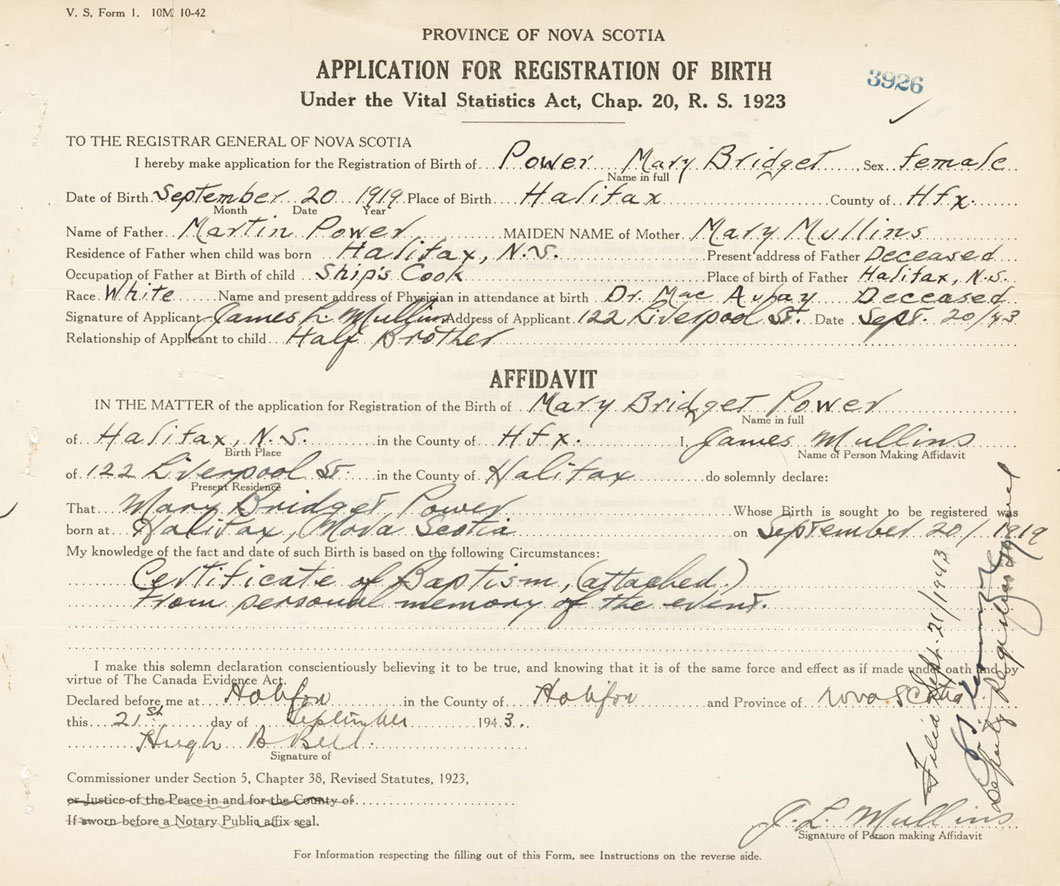 V. S. Form 1. 10M 10-42
PROVINCE OF NOVA SCOTIA
APPLICATION FOR REGISTRATION OF BIRTH
3926
Under the Vital Statistics Act, Chap. 20, R. S. 1923
TO THE REGISTRAR GENERAL OF NOVA SCOTIA
I hereby make application for the Registration of Birth of Power Mary Bridget, Sex female
Name in full
Date of Birth September 20 1919 Place of Birth Halifax County of Hfx.
Month Date Year
Name of Father Martin Power MAIDEN NAME of Mother Mary Mullins
Residence of Father when child was born Halifax, N.S. Present address of Father Deceased
Occupation of Father at Birth of child Ship's Cook Place of birth of Father Halifax, N.S.
Race White Name and present address of Physician in attendance at birth Dr. Mac Deceased
Signature of Applicant James L. Mullins Address of Applicant 122 Liverpool St. Date Sept. 20/43
Relationship of Applicant to child Half Brother
AFFIDAVIT
IN THE MATTER of the application for Registration of the Birth of Mary Bridget Power
Name in full
of Halifax, N.S. in the County of Hfx. I, James Mullins
Birth Place Name of Person Making Affidavit
of 122 Liverpool St in the County of Halifax do solemnly declare:
Present Residence
That Mary Bridget Power Whose Birth is sought to be registered was
born at Halifax, Nova Scotia on September 20/ 1919
My knowledge of the fact and date of such Birth is based on the following Circumstances:
Certificate of Baptism, (attached)
From personal memory of the event.
I make this solemn declaration conscientiously believing it to be true, and knowing that it is of the same force and effect as if made under oath and by
virtue of The Canada Evidence Act.
Declared before me at Halifax in the County of Halifax and Province of Nova Scotia
this 21st day of September 1943.
Hugh B Bell
Signature of
Commissioner under Section 5, Chapter 38, Revised Statutes, 1923,
or Justice of the Peace in and for the County of
If sworn before a Notary Public affix seal.
J. L. Mullins
Signature of Person making Affidavit
For Information respecting the filling out of this Form, see Instructions on the reverse side.
Filed Sept. 21/1943
Deputy Registrar General